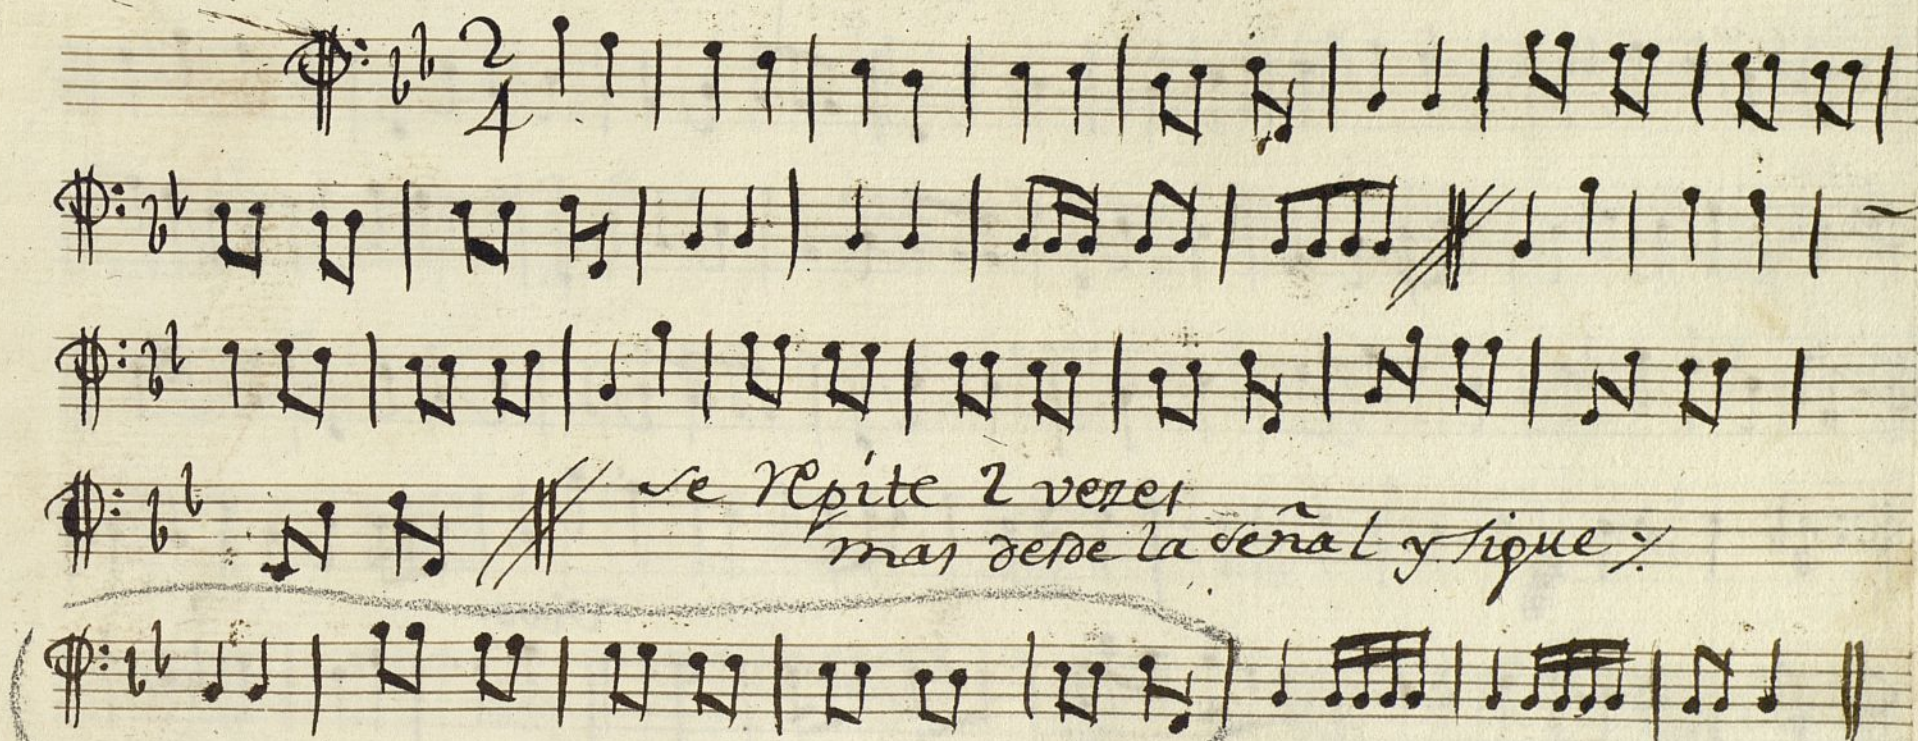 2
4
se repite 2 vezes
mas desde la señal y sigue